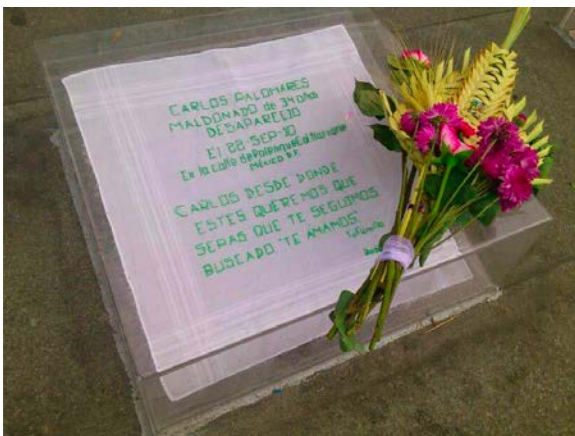 CARLOS PALOMARES
MALDONADO de 34 años
DESAPARECIO
El 22-SEP-10
En la calle de Palenque Col. Narvarte
MÉXICO D.F.
CARLOS DESDE DONDE
ESTES QUEREMOS QUE
SEPAS QUE TE SEGUIMOS
BUSCADO "TE AMAMOS"
Tu Familia